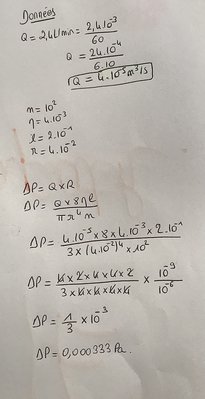 Données
Q = 2,4L/min = 2,4.10⁻³/60
Q = 24.10⁻⁴/6.10
Q = 4.10⁻⁵ m³/s
n = 10²
η = 4.10⁻³
l = 2.10⁻¹
r = 4.10⁻²
ΔP = Q×R
ΔP = Q × 8ηl/πr⁴n
ΔP = 4.10⁻⁵ × 8 × 4.10⁻³ × 2.10⁻¹/3 × (4.10⁻²)⁴ × 10²
ΔP = 4 × 2 × 4 × 4 × 2/3 × 4 × 4 × 4 × 4 × 10⁻⁹/10⁻⁶
ΔP = 1/3 × 10⁻³
ΔP = 0,000333 Pa.